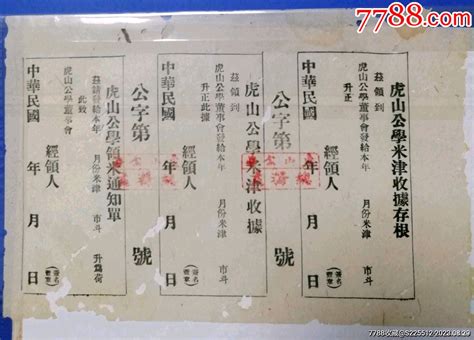 7788.com
虎山公學米津收據存根
茲領到
虎山公學董事會發給本年　月份米津　市斗
升正
經領人
中華民國　年　月　日
(簽名蓋章)
公字第　號
虎山公學米津收據
茲領到
虎山公學董事會發給本年　月份米津　市斗
升正此據
經領人
中華民國　年　月　日
(簽名蓋章)
公字第　號
虎山公學領米通知單
茲請發給本年　月份米津　市斗　升為荷
此致
虎山公學董事會
經領人
中華民國　年　月　日
(簽名蓋章)
7788收藏@S225512/2023.08.29